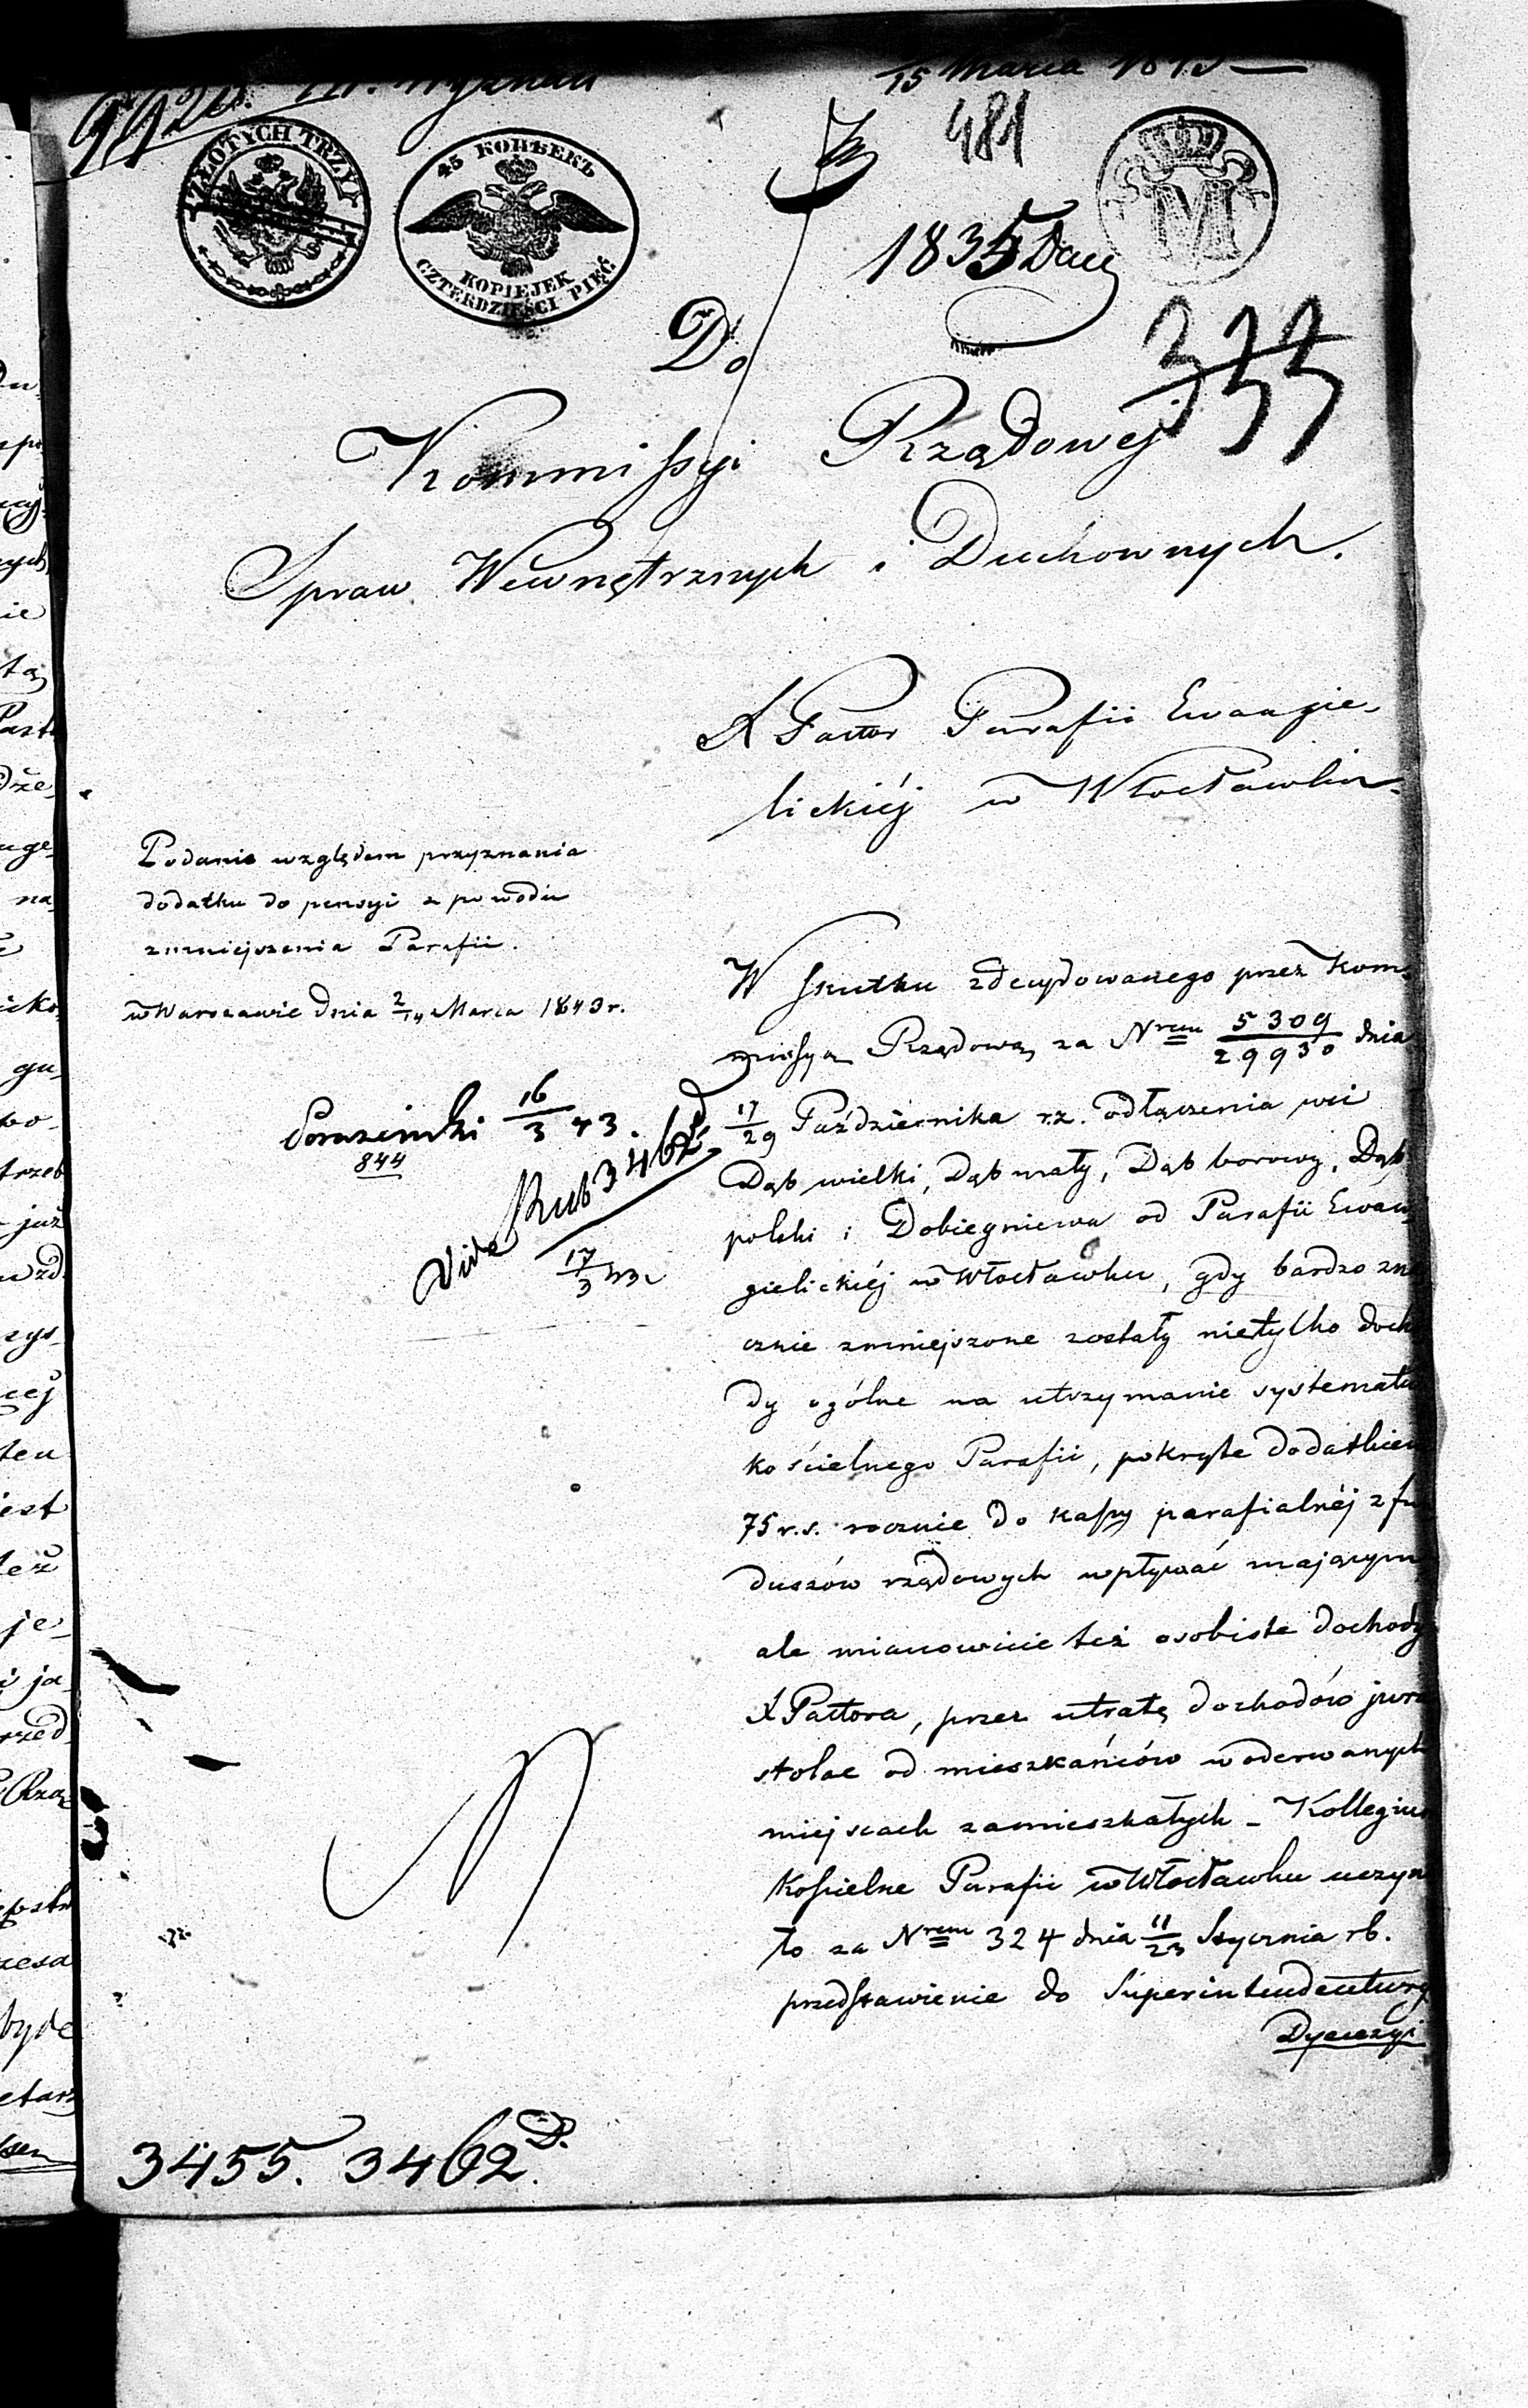 15 Marca 1843
481
ZŁOTYCH TRZY
45 КОПѢЕКЪ
KOPIEJEK
CZTERDZIEŚCI PIĘĆ
M
1835
Do
Kommissyi Rządowej
Spraw Wewnętrznych i Duchownych.
X Pastor Parafii Ewangie-
lickiéj w Włocławku.
Podanie względem przyznania
dodatku do pensyi z powodu
zmniejszenia Parafii.
w Warszawie dnia 2/14 Marca 1843 r.
16/3 43.
844
Vide Rub 3462 D.
17/3 43
W skutku zdecydowanego przez Kom-
missyą Rządową za Nrem 5309/29930 dnia
17/29 Października r.z. odłączenia wsi
Dąb wielki, Dąb mały, Dąb borowy, Dąb
polski i Dobiegniewa od Parafii Ewan-
gielickiéj w Włocławku, gdy bardzo zna
cznie zmniejszone zostały nietylko docho
dy ogólne na utrzymanie systematu
kościelnego Parafii, pokryte dodatkiem
75 r.s. rocznie do kassy parafialnéj z fu
duszów rządowych wpływać mającym
ale mianowicie też osobiste dochody
X Pastora, przez utratę dochodów jura
stolae od mieszkańców w oderwanych
miejscach zamieszkałych - Kollegium
Kościelne Parafii w Włocławku uczyni
to za Nrem 324 dnia 11/23 Stycznia rb.
przedstawienie do Superintendentury
Dyecezyi
3455. 3462 D.